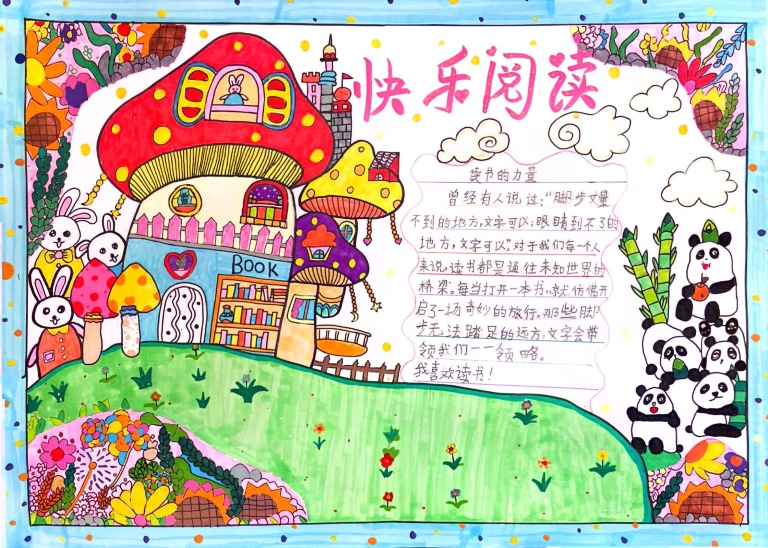 快乐阅读
读书的力量
曾经有人说过:“脚步丈量
不到的地方,文字可以;眼睛到不了的
地方,文字可以”。对于我们每一个人
来说,读书都是通往未知世界的
桥梁。每当打开一本书,就仿佛开
启了一场奇妙的旅行。那些脚
步无法踏足的远方,文字会带
领我们一一领略。
我喜欢读书!
BOOK